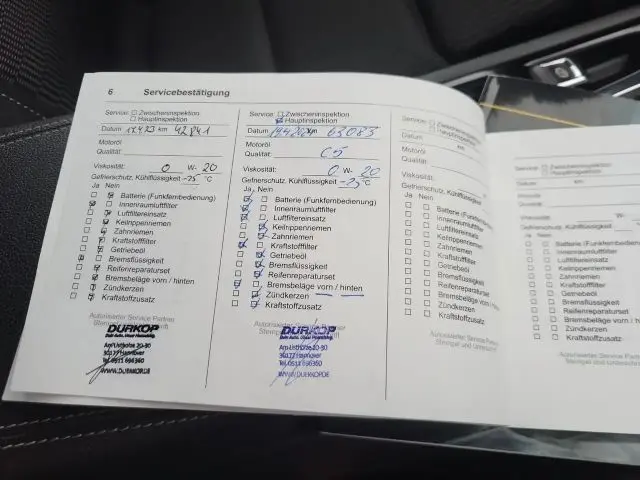 6 Servicebestätigung
Service: Zwischeninspektion
Hauptinspektion
Datum 17.4.23 km 42841
Motoröl
Qualität:
Viskosität: 0 W- 20
Gefrierschutz, Kühlflüssigkeit -25 °C
Ja Nein
Batterie (Funkfernbedienung)
Innenraumluftfilter
Luftfiltereinsatz
Keilrippenriemen
Zahnriemen
Kraftstofffilter
Getriebeöl
Bremsflüssigkeit
Reifenreparaturset
Bremsbeläge vorn / hinten
Zündkerzen
Kraftstoffzusatz
Autorisierter Service Partner
DÜRKOP
Am Listholze 20-30
30177 Hannover
Tel.0511 696360
WWW.DUERKOP.DE
Service: Zwischeninspektion
Hauptinspektion
Datum km 63083
Motoröl
Qualität: C5
Viskosität: 0 W- 20
Gefrierschutz, Kühlflüssigkeit -25 °C
Ja Nein
Batterie (Funkfernbedienung)
Innenraumluftfilter
Luftfiltereinsatz
Keilrippenriemen
Zahnriemen
Kraftstofffilter
Getriebeöl
Bremsflüssigkeit
Reifenreparaturset
Bremsbeläge vorn / hinten
Zündkerzen
Kraftstoffzusatz
DÜRKOP
Am Listholze 20-30
30177 Hannover
Tel.0511 696360
WWW.DUERKOP.DE
Service: Zwischeninspektion
Hauptinspektion
Datum km
Motoröl
Qualität:
Viskosität: W-
Gefrierschutz, Kühlflüssigkeit
Ja Nein
Batterie (Funkfernbedienung)
Innenraumluftfilter
Luftfiltereinsatz
Keilrippenriemen
Zahnriemen
Kraftstofffilter
Getriebeöl
Bremsflüssigkeit
Reifenreparaturset
Bremsbeläge vorn / hinten
Zündkerzen
Kraftstoffzusatz
Autorisierter Service Partner
Stempel und Unterschrift
Service: Zwischeninspektion
Hauptinspektion
Datum
Motoröl
Qualität
Viskosität
Gefrierschutz, Kühlflüssigkeit
Ja Nein
Batterie
Innenraumluftfilter
Luftfiltereinsatz
Keilrippenriemen
Zahnriemen
Kraftstofffilter
Getriebeöl
Bremsflüssigkeit
Reifenreparaturset
Bremsbeläge vorn / hinten
Zündkerzen
Kraftstoffzusatz
Autorisierter Service
Stempel und